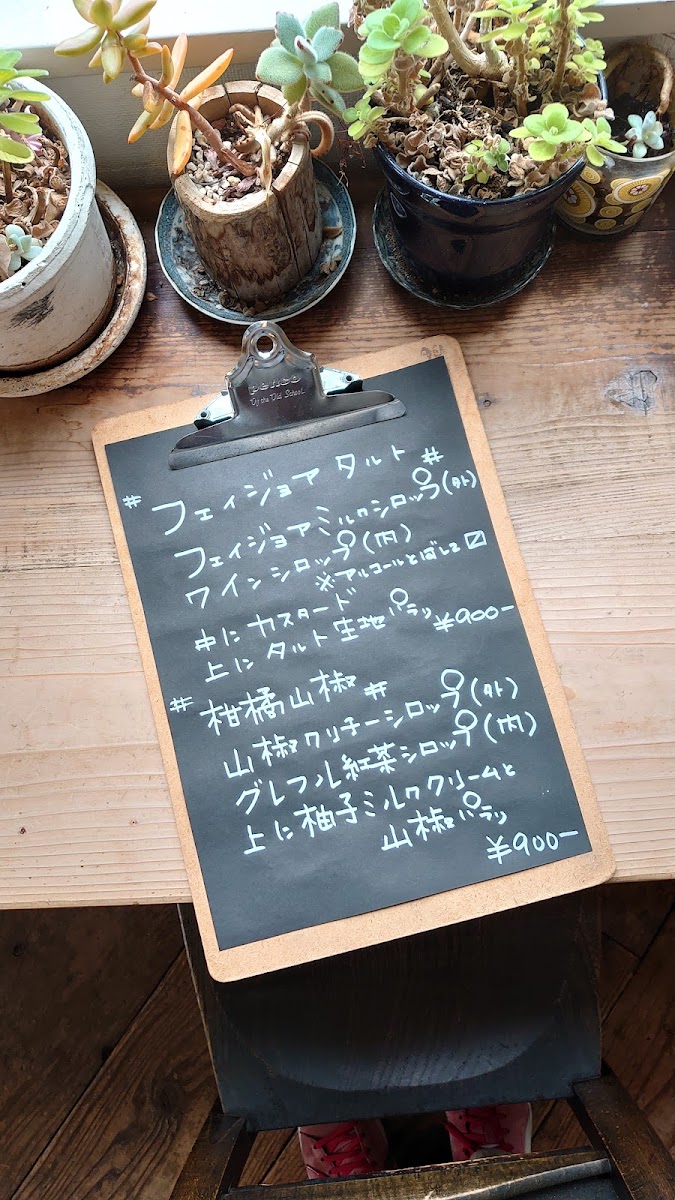 penco
Of the Old School.
# フェイジョア タルト #
フェイジョアミルクシロップ(外)
ワインシロップ(内)
※アルコールとばして〼
中にカスタード
上にタルト生地パラリ ¥900-
# 柑橘山椒 #
山椒クリチーシロップ(外)
グレフル紅茶シロップ(内)
上に柚子ミルククリームと
山椒パラリ
¥900-